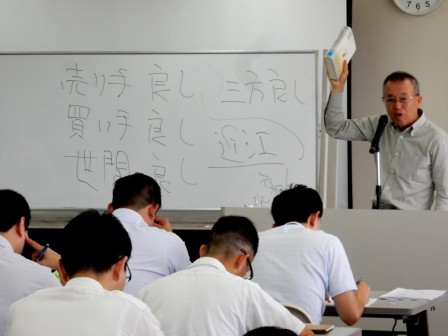 売り手 良し 三方良し
買い手 良し 近江
世間 良し
7 6 5